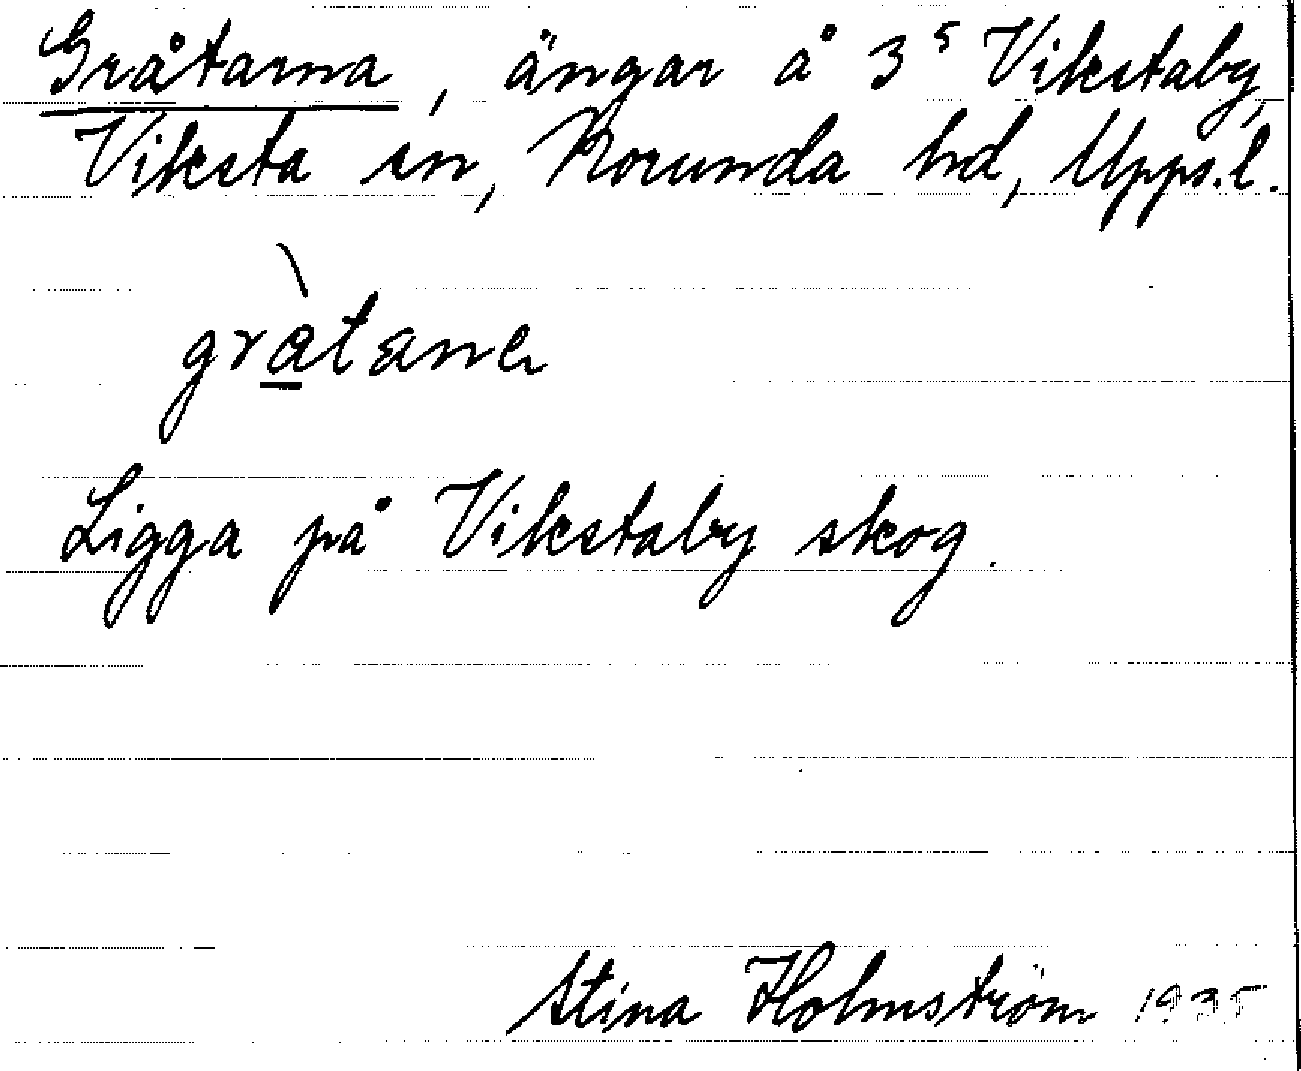 Gråtarna, ängar å 3⁵ Vikstaby,
Viksta sn, Norunda hd, Upps.l.
gràtanɐ
Ligga på Vikstaby skog.
Stina Holmström 1935